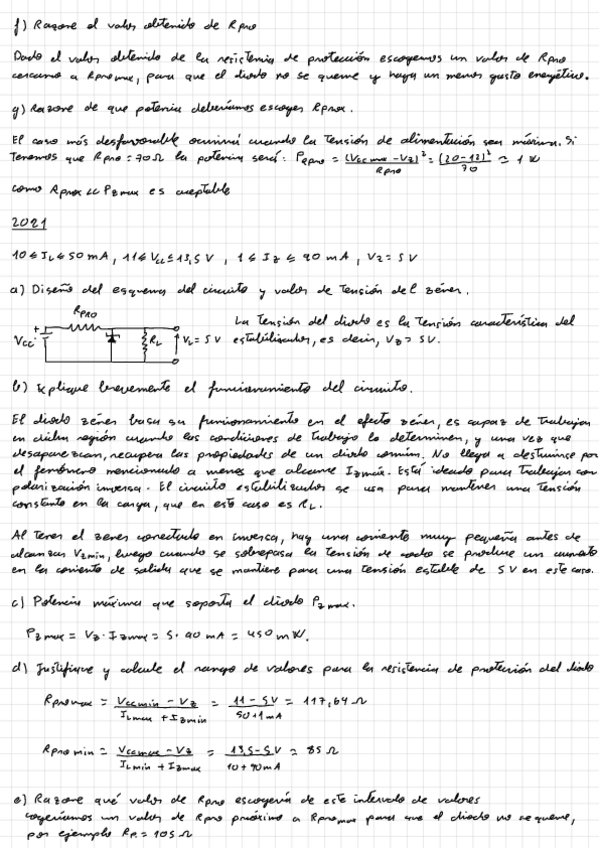 f) Razone el valor obtenido de Rpro
Dado el valor obtenido de la resistencia de protección escogemos un valor de Rpro
cercano a Rpromax, para que el diodo no se queme y haya un menor gasto energético.
g) Razone de que potencia deberíamos escoger Rprox.
El caso más desfavorable ocurrirá cuando la tensión de alimentación sea máxima. Si
Tenemos que Rpro = 70Ω la potencia será: PRpro = (Vccmax - Vz)²/Rpro = (20-12)²/70 ≃ 1 W
como Pprox << Pzmax es aceptable
2021
10 ≤ IL ≤ 50 mA, 11 ≤ Vcc ≤ 13,5 V, 1 ≤ Iz ≤ 90 mA, Vz = 5V
a) Diseño del esquema del circuito y valor de tensión del zéner.
RPRO
Vcc + RL VL = 5V
La Tensión del diodo es la Tensión característica del
estabilizador, es decir, Vz = 5V.
b) Explique brevemente el funcionamiento del circuito.
El diodo zéner basa su funcionamiento en el efecto zéner, es capaz de trabajar
en dicha región cuando las condiciones de trabajo lo determinen, y una vez que
desaparezcan, recupera las propiedades de un diodo común. No llega a destruirse por
el fenómeno mencionado a menos que alcance Izmáx. Está ideado para trabajar con
polarización inversa. El circuito estabilizador se usa para mantener una Tensión
constante en la carga, que en este caso es RL.
Al tener el zener conectado en inversa, hay una corriente muy pequeña antes de
alcanzar Vzmin, luego cuando se sobrepasa la tensión de codo se produce un aumento
en la corriente de salida que se mantiene para una tensión estable de 5V en este caso.
c) Potencia máxima que soporta el diodo Pzmax.
Pzmax = Vz · Izmax = 5 · 90 mA = 450 mW.
d) Justifique y calcule el rango de valores para la resistencia de protección del diodo
Rpromax = (Vccmin - Vz)/(ILmax + Izmin) = (11 - 5V)/(50+1mA) = 117,64 Ω
Rpromin = (Vccmax - Vz)/(ILmin + Izmax) = (13,5-5V)/(10+90mA) = 85 Ω
e) Razone qué valor de Rpro escogería de este intervalo de valores
cogeríamos un valor de Rpro próximo a Rpromax para que el diodo no se queme,
por ejemplo Rp = 105 Ω